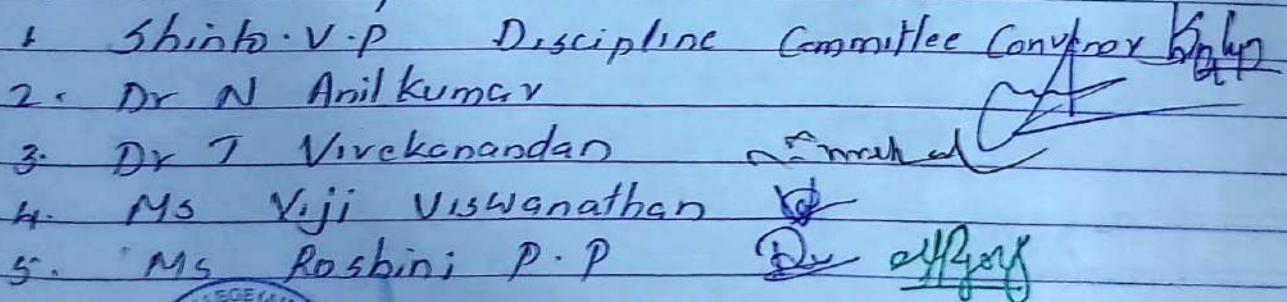 1 Shinto.V.P Discipline Committee Convenor
2. Dr N Anilkumar
3. Dr T Vivekanandan
4. Ms Viji Viswanathan
5. Ms Roshini P.P